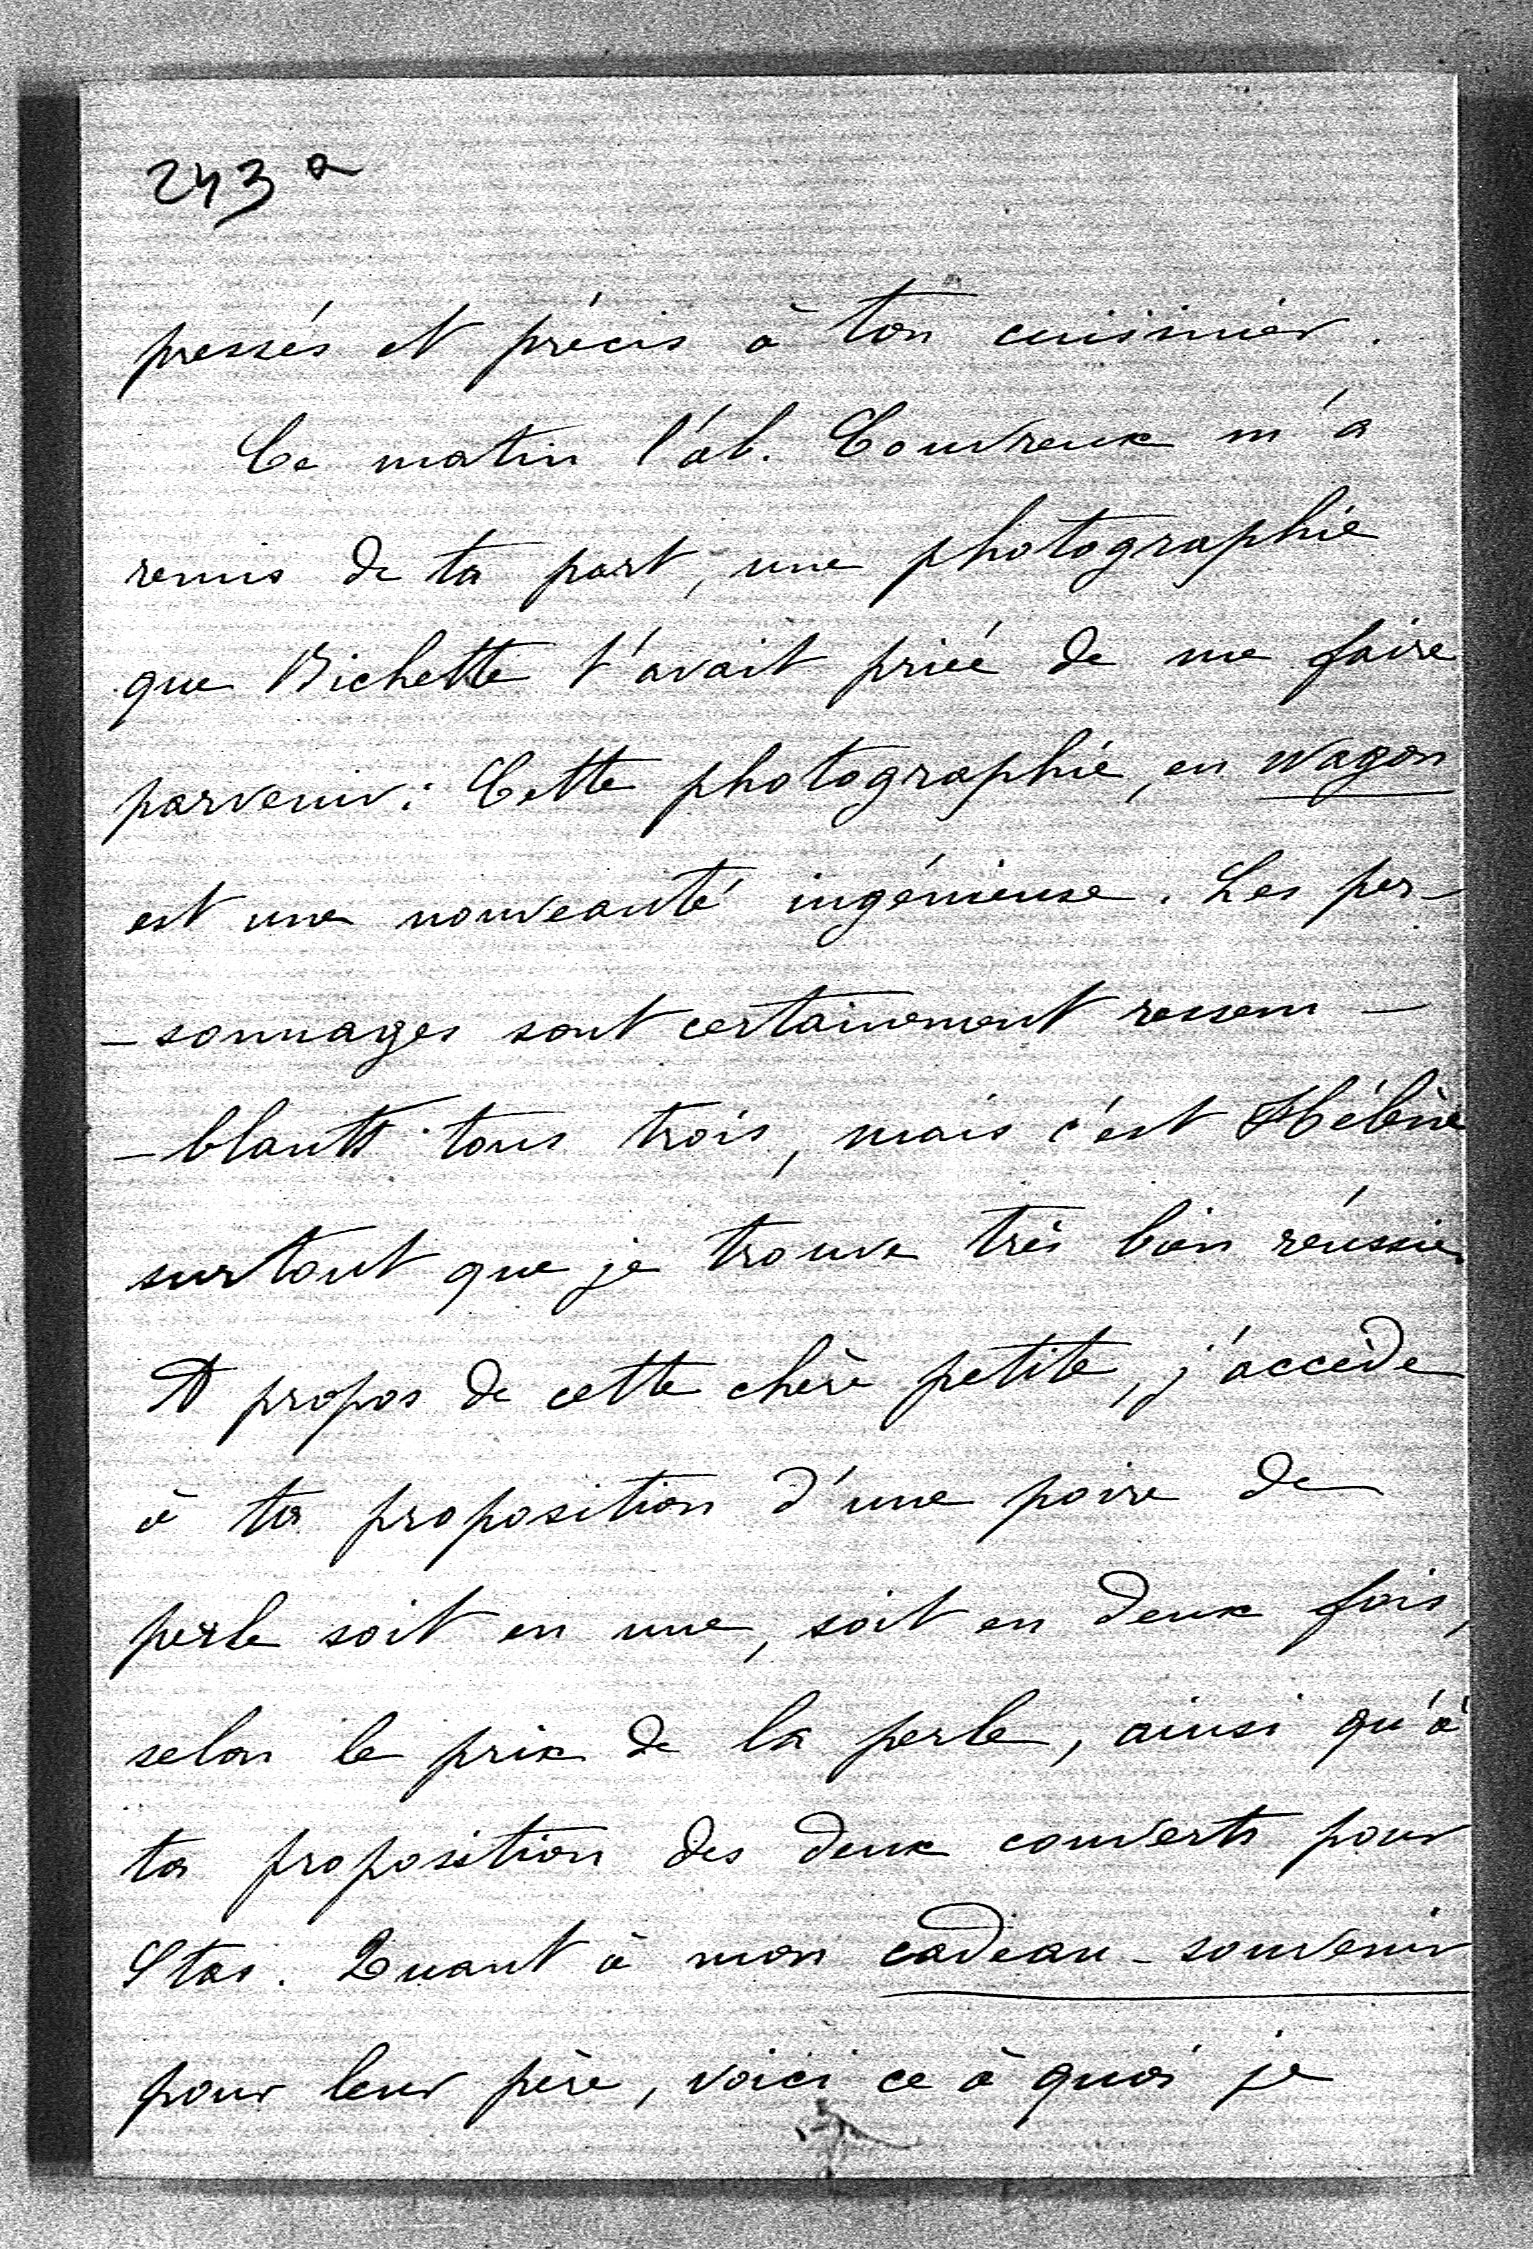 243 a
pressés et précis à ton cuisinier.
Ce matin l'ab. Couvreux m'a
remis de ta part, une photographie
que Bichette t'avait priée de me faire
parvenir. Cette photographie, en wagon
est une nouveauté ingénieuse. Les per-
-sonnages sont certainement ressem-
-blants tous trois, mais c'est Hélène
surtout que je trouve très bien réussie.
A propos de cette chère petite, j'accède
à ta proposition d'une poire de
perle soit en une, soit en deux fois,
selon le prix de la perle, ainsi qu'à
ta proposition des deux couverts pour
Stas. Quant à mon cadeau-souvenir
pour leur père, voici ce à quoi je